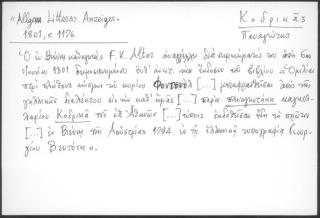 "Allgem. Litterar. Anzeiger"
1801, σ. 1176
Κοδρικᾶς
Παναγιώτης
Ὁ ἐν Βιέννῃ καθηγητὴς F. K. Alter ἀναγγέλλει διὰ σημειώματός του ἀπὸ 6ης
Ἰουνίου 1801 δημοσιευομένου τὴν ἔκδοσιν τοῦ βιβλίου «Ὁμιλίαι
περὶ πληθύος κόσμων τοῦ κυρίου Φοντενὲλ [...] μεταφρασθεῖσαι ἀπὸ τῆς
γαλλικῆς διαλέκτου εἰς τὴν καθ' ἡμᾶς [...] παρὰ Παναγιωτάκη καγκελ-
λαρίου Κοδρικᾶ τοῦ ἐξ Ἀθηνῶν [...] ἐκδοθεῖσαι ἤδη τὸ πρῶτον
[...] ἐν Βιέννῃ τῆς Αὐστρίας 1794. ἐν τῇ ἑλληνικῇ τυπογραφίᾳ Γεωρ-
γίου Βενδότη».